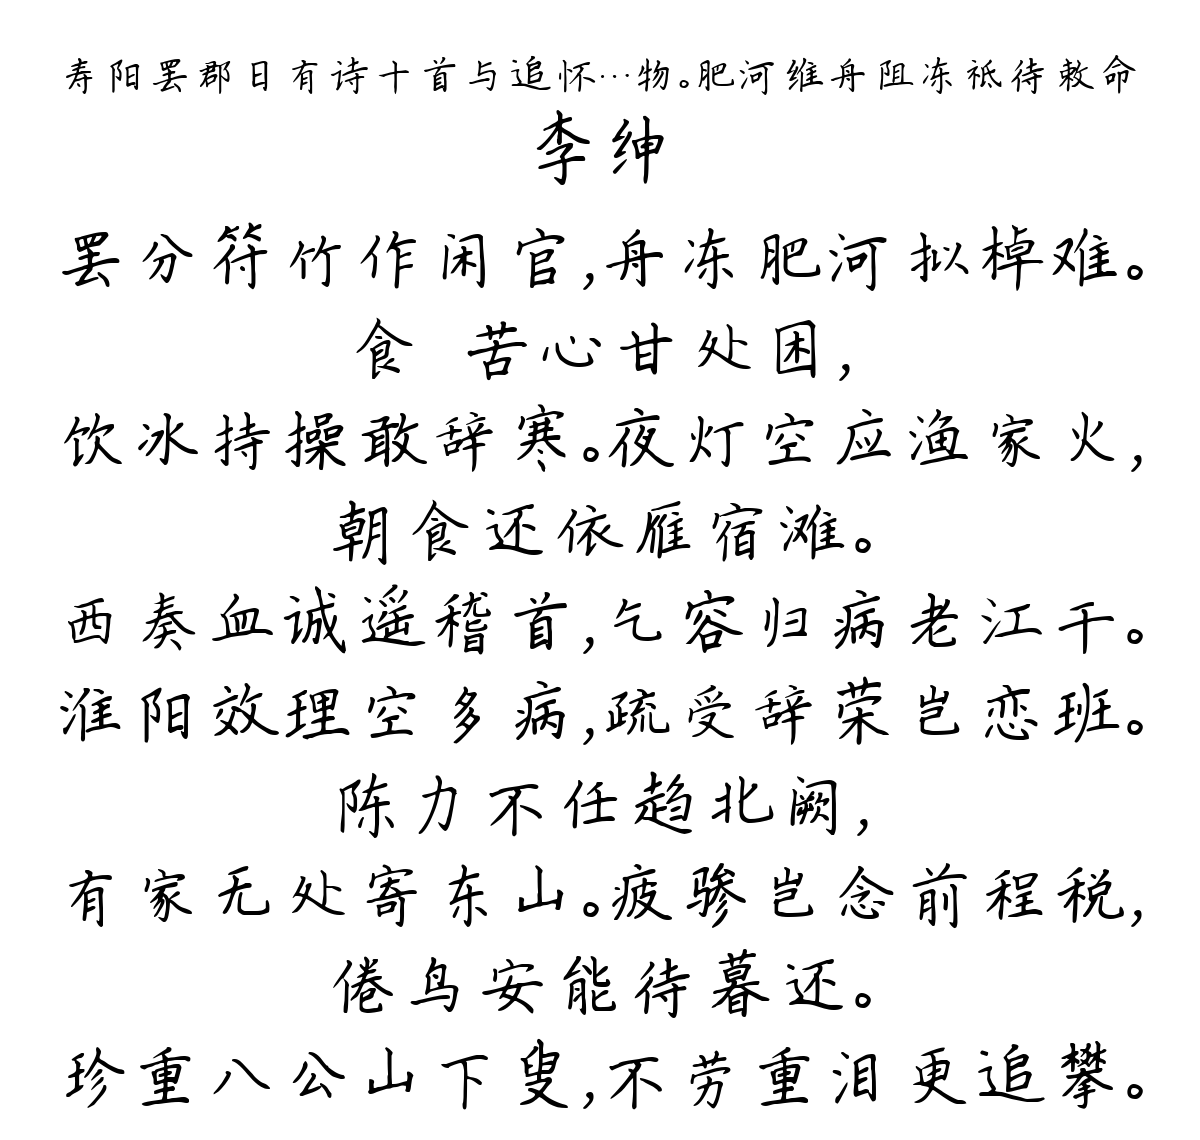 寿阳罢郡日有诗十首与追怀…物。肥河维舟阻冻祗待敕命
李绅
罢分符竹作闲官,舟冻肥河拟棹难。
食 苦心甘处困,
饮冰持操敢辞寒。夜灯空应渔家火,
朝食还依雁宿滩。
西奏血诚遥稽首,乞容归病老江干。
淮阳效理空多病,疏受辞荣岂恋班。
陈力不任趋北阙,
有家无处寄东山。疲骖岂念前程税,
倦鸟安能待暮还。
珍重八公山下叟,不劳重泪更追攀。